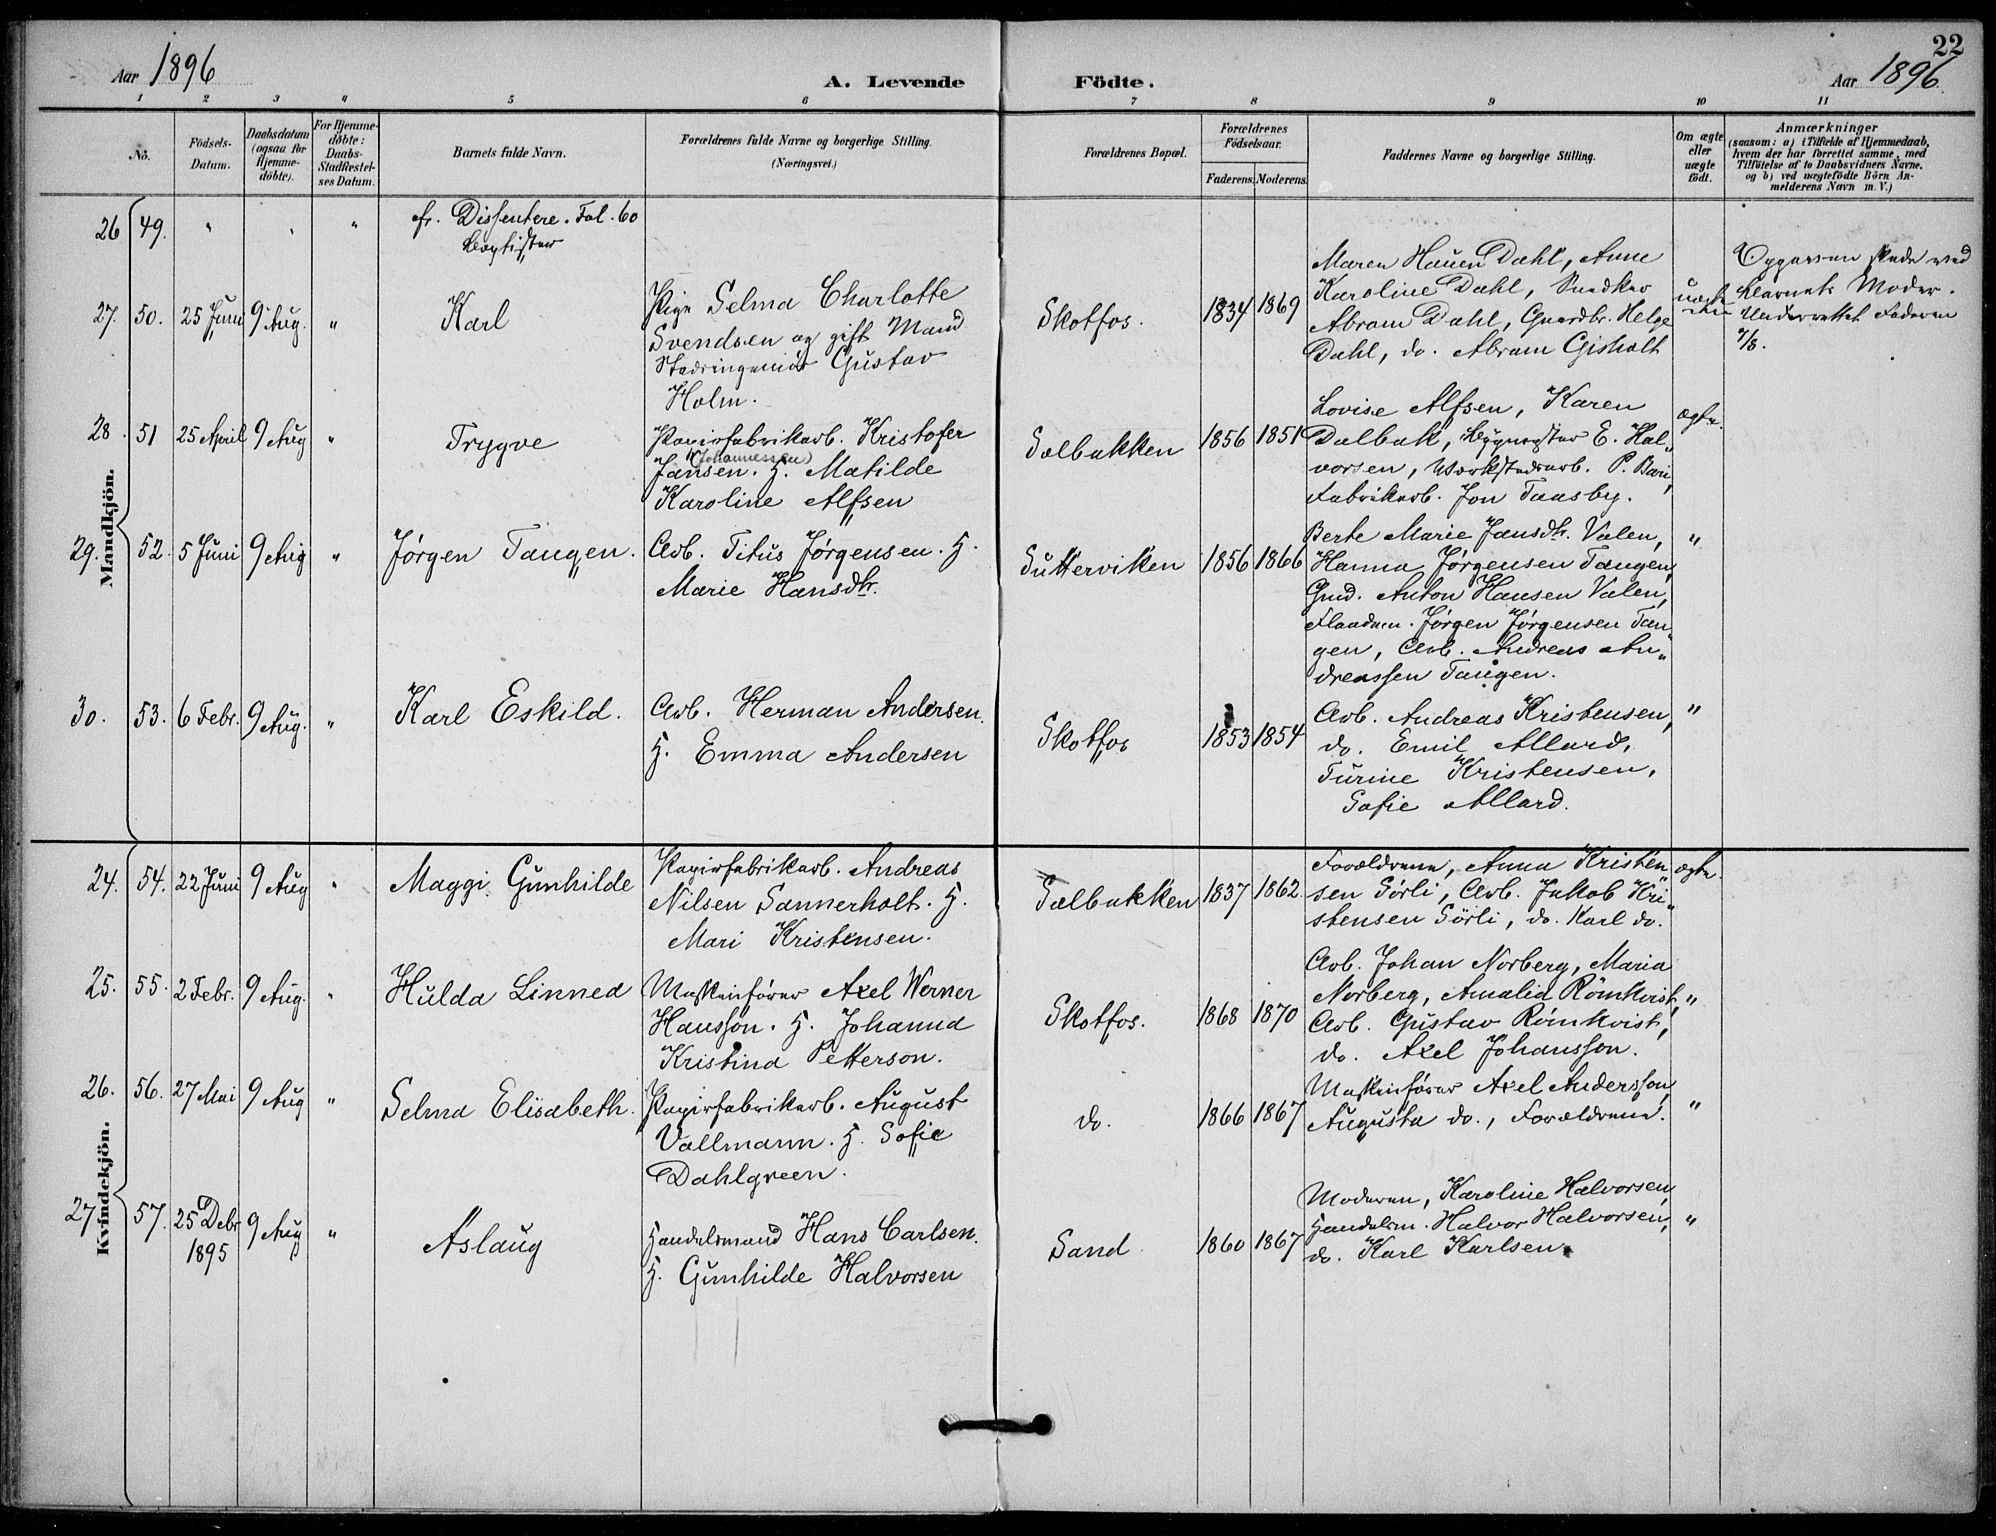 22
Aar 1896
A. Levende
Födte.
Aar 1896.
1 2 3 4 5 6 7 8 9 10 11
No.
Födsels-
Datum.
Daabsdatum
(ogsaa for
Hjemme-
döbte).
For Hjemme-
döbte:
Daabs-
Stadfæstel-
ses Datum.
Barnets fulde Navn.
Forældrenes fulde Navne og borgerlige Stilling.
(Næringsvei.)
Forældrenes Bopæl.
Forældrenes
Födselsaar.
Faderens.
Moderens.
Faddernes Navne og borgerlige Stilling.
Om ægte
eller
uægte
födt.
Anmærkninger
(saasom: a) i Tilfælde af Hjemmedaab,
hvem der har forrettet samme, med
Tilföielse af to Daabsvidners Navne.
og b) ved uægtefödte Börn An-
melderens Navn m. V.)
Mandkjön.
26 49. " " "
fr. Dissentere. Fol. 60
Baptister
27. 50. 25 Juni 9 Aug. "
Karl
Pige Selma Charlotte
Svendsen og gift Mand
Stadsingeniør Gustav
Holm.
Skotfos.
1834 1869
Maren Hauen Dahl, Anne
Karoline Dahl, Snedker
Abram Dahl, Gaardbr. Helge
Dahl, do. Abram Gisholt
uægte
Opgaven skede ved
Barnets Moder.
Underrettet Faderen
7/8.
28. 51 25 April 9 Aug "
Trygve
Papirfabrikarb. Kristofer
(Johannessen)
Jansen. H. Matilde
Karoline Alfsen
Dælbakken
1856 1851
Lovise Alfsen, Karen
Dalbak, Bygmester E. Hal„
vorsen, Værkstedsarb. P.
Fabrikarb. Jon Taasby.
ægte.
29. 52. 5 Juni 9 Aug "
Jørgen Tangen.
Arb. Titus Jørgensen. H.
Marie Hansdtr.
Gutterviken
1856 1866
Berte Marie Jansdtr. Valen,
Hanna Jørgensen Tangen,
Gmd. Anton Hansen Valen,
Flaadem. Jørgen Jørgensen Tan„
gen, Arb. Andreas An„
dreassen Tangen.
"
30. 53. 6 Febr. 9 Aug. "
Karl Eskild.
Arb. Herman Andersen.
H. Emma Andersen
Skotfos
1853 1854
Arb. Andreas Kristensen,
do. Emil Allard,
Turine Kristensen,
Sofie Allard.
"
Kvindekjön.
24. 54. 22 Juni 9 Aug "
Maggi Gunhilde
Papirfabrikarb. Andreas
Nilsen Sannerholt. H.
Mari Kristensen.
Dælbakken
1837 1862
Forældrene, Anna Kristen
sen Sörli, Arb. Jakob Kri„
stensen Sörli, do. Karl do.
ægte.
25. 55. 2 Febr. 9 Aug. "
Hulda Linnea
Maskinfører Axel Werner
Hansson. H. Johanna
Kristina Petterson.
Skotfos.
1868 1870
Arb. Johan Norberg, Maria
Norberg, Amalia Römkvist,
Arb. Gustav Römkvist,
do. Axel Johansson.
"
26. 56. 27 Mai 9 Aug "
Selma Elisabeth.
Papirfabrikarb. August
Vallmann. H. Sofie
Dahlgreen.
do.
1866 1867
Maskinfører Axel Andersson,
Augusta do., Forældrene.
"
27 57. 25 Debr
1895
9 Aug "
Aslaug
Handelsmand Hans Carlsen.
H. Gunhilde Halvorsen
Sand
1860 1867
Moderen, Karoline Halvorsen,
Handelsm. Halvor Halvorsen,
do. Karl Karlsen.
"